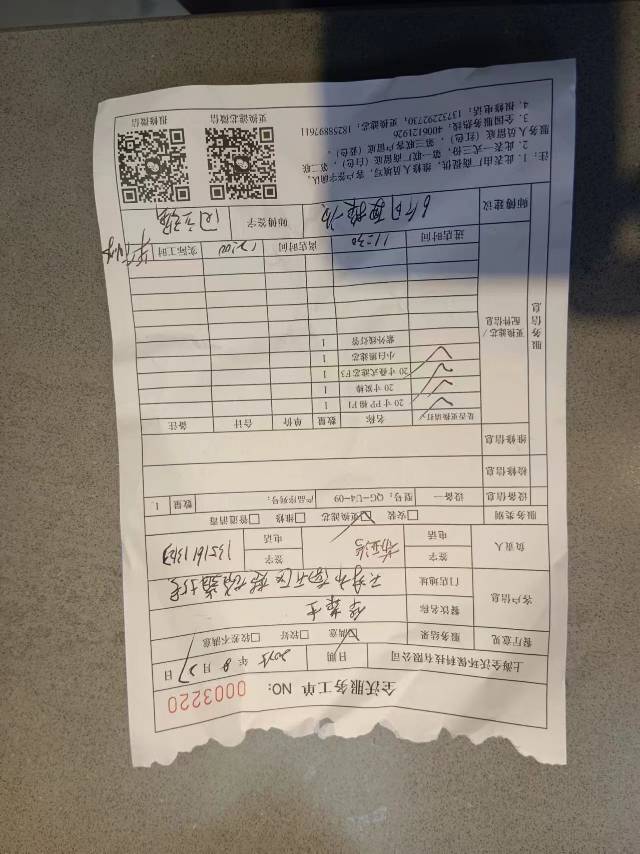 全沃服务工单 NO: 0003220
上海全沃环保科技有限公司 日期 2025 年 8 月 27 日
餐厅意见 服务结果 满意 较好 较差不满意
客户信息 餐饮名称
门店地址
负责人 签字 签字
电话 电话
服务类别 安装 更换滤芯 维修 管道消毒
设备信息 设备一 型号：QG-U4-09 产品序列号： 数量 1.
检修信息
维修信息
服务信息
更换滤芯/配件信息
是否更换请打√ 名称 数量 单价 合计 备注
20 寸 PP 棉 F1 1
20 寸炭棒 1
20 寸叠式滤芯 F3 1
小白磷滤芯 1
紫外线灯管 1
进店时间 11:30 离店时间 12:00 实际工时 半小时
师傅建议 师傅签字
注：1. 此表由厂商提供，维修人员填写，客户签字确认。
2. 此表一式三份，第一联厂商留底（白色），第二联
服务人员留底（红色），第三联客户留底（蓝色）。
3. 全国服务热线：4006121926
4. 报修电话：13732292730，更换滤芯：18258897611
更换滤芯微信 报修微信